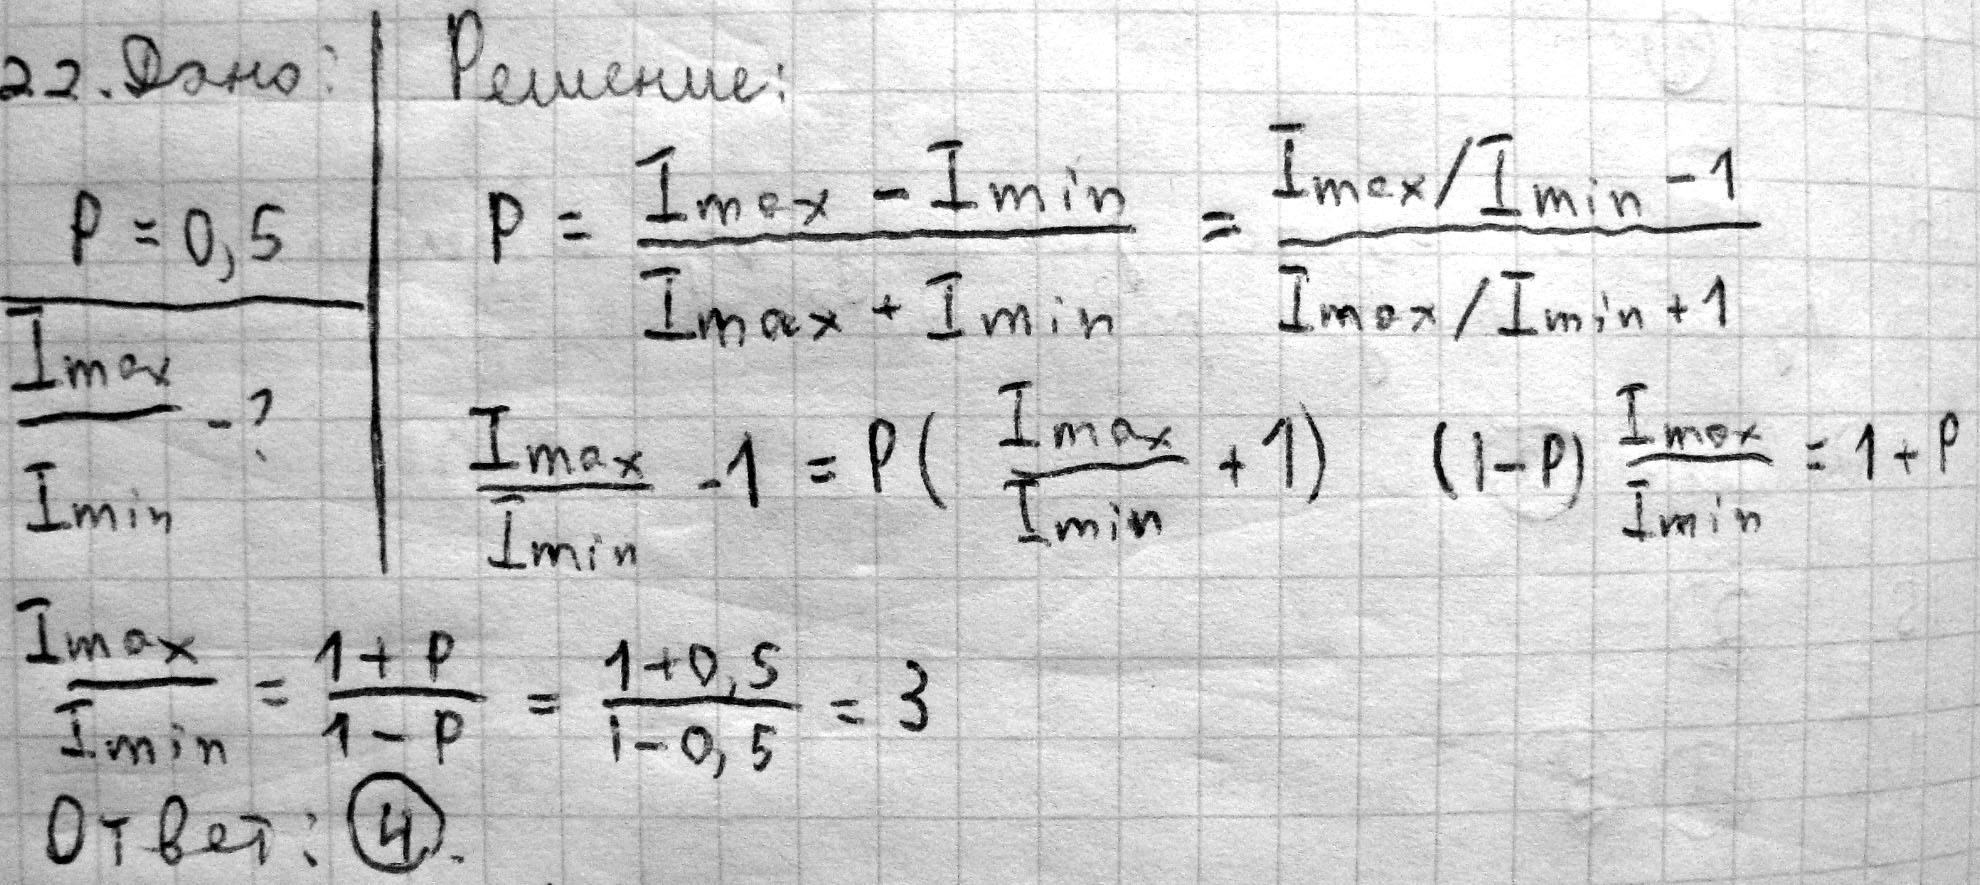 22. Дано:
P = 0,5
Imax/Imin - ?
Решение:
P = (Imax - Imin)/(Imax + Imin) = (Imax/Imin - 1)/(Imax/Imin + 1)
Imax/Imin - 1 = P(Imax/Imin + 1) (1-P) Imax/Imin = 1 + P
Imax/Imin = (1 + P)/(1 - P) = (1+0,5)/(1-0,5) = 3
Ответ: 4.